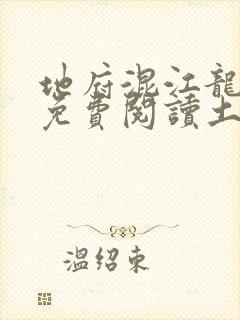 地府混江龍
免費閱讀土
溫绍東